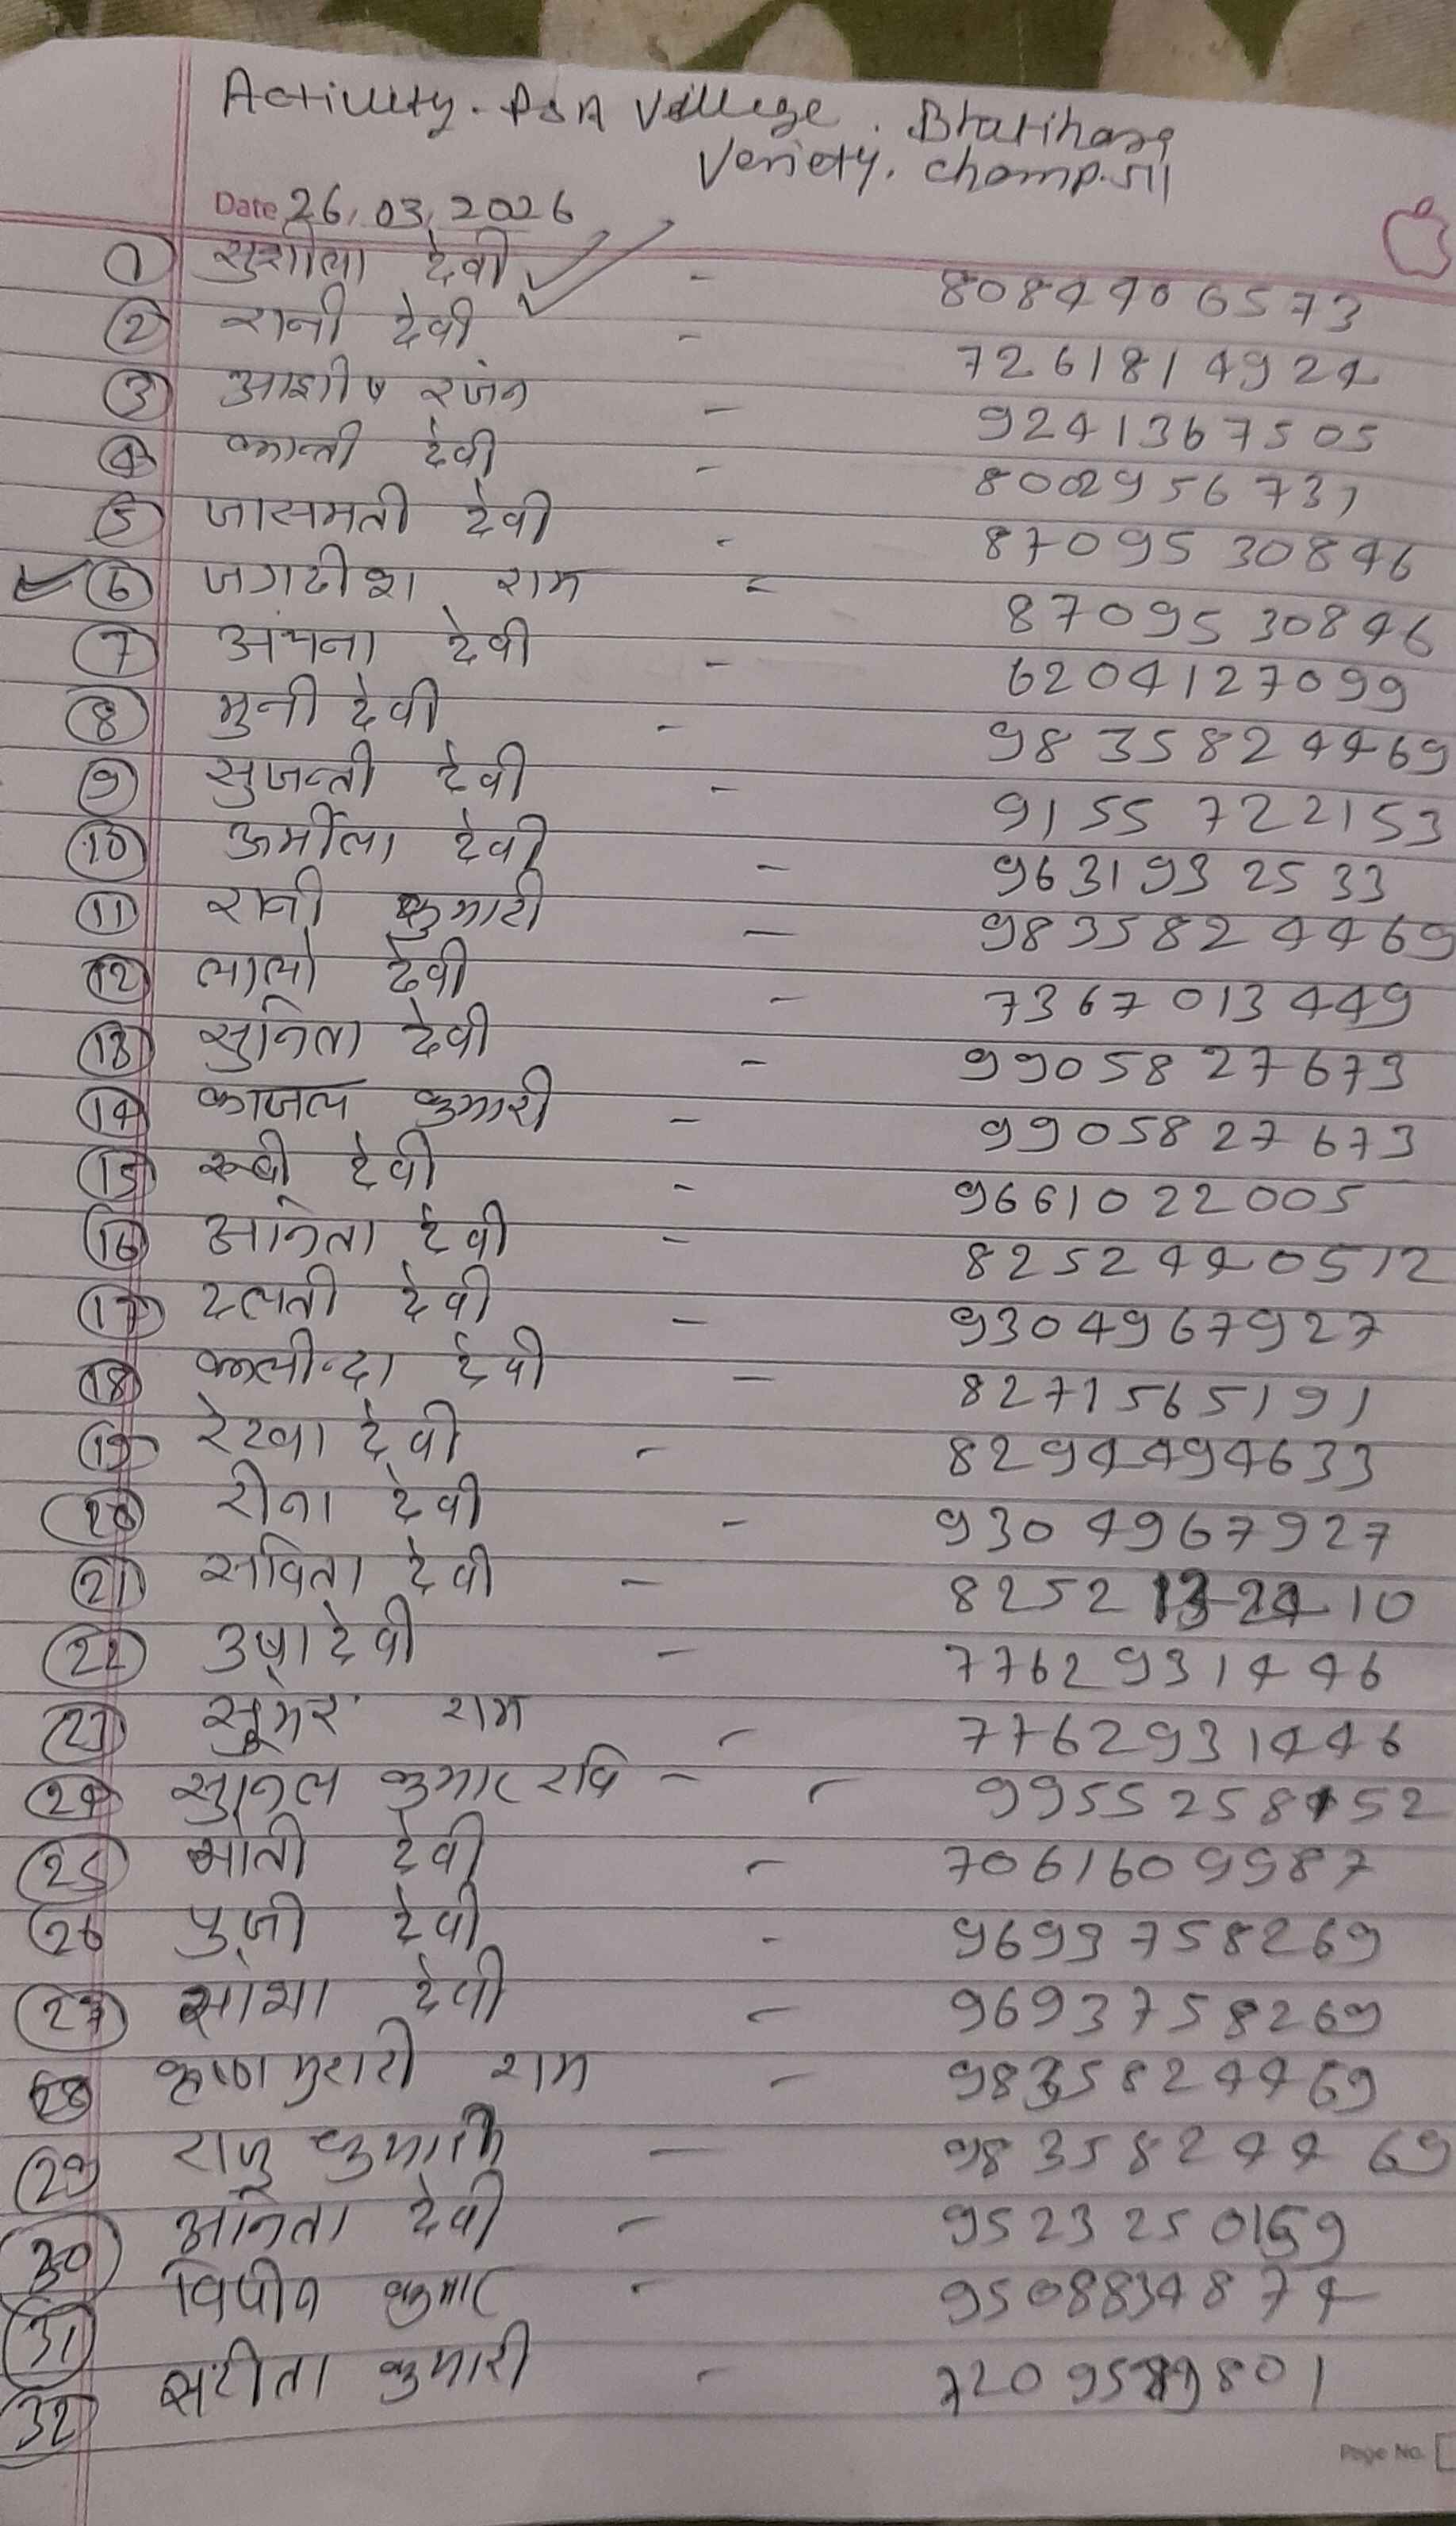 Activity. PSA Village. Bhatihara
Veriety. Champ.511
Date 26.03.2026
① सुशीला देवी - 8084406573
② रानी देवी - 7261814924
③ आशीष रंजन - 9241367505
④ कान्ती देवी - 8002956731
⑤ जासमती देवी - 8709530846
⑥ जगदीश राम - 8709530846
⑦ अंचना देवी - 6204127099
⑧ मुनी देवी - 9835824469
⑨ सुजन्ती देवी - 9155722153
⑩ ऊर्मीला देवी - 9631932533
⑪ रानी कुमारी - 9835824469
⑫ लालो देवी - 7367013449
⑬ सुनिता देवी - 9905827673
⑭ काजल कुमारी - 9905827673
⑮ रूबी देवी - 9661022005
⑯ अनिता देवी - 8252440512
⑰ दलती देवी - 9304967927
⑱ कलीन्दा देवी - 8271565191
⑲ रेखा देवी - 8294494633
⑳ रीना देवी - 9304967927
㉑ सविता देवी - 8252132410
㉒ उषा देवी - 7762931446
㉓ सूमेर राम - 7762931446
㉔ सुनिल कुमार रवि - - 9955258452
㉕ मोती देवी - 7061609987
㉖ पुजी देवी - 9693758269
㉗ सोभा देवी - 9693758269
㉘ कृष्ण मुरारी राम - 9835824469
㉙ राजू कुमार - 9835824469
㉚ अनिता देवी - 9523250169
㉛ विपीन कुमार - 9508834874
㉜ सरीता कुमारी - 7209589801
Page No.